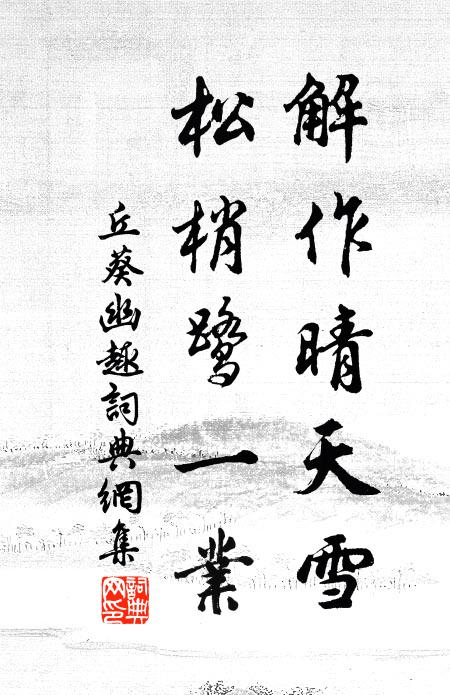 解作晴天雪
松梢鹭一業
丘葵幽趣詞典網集
詞典网印